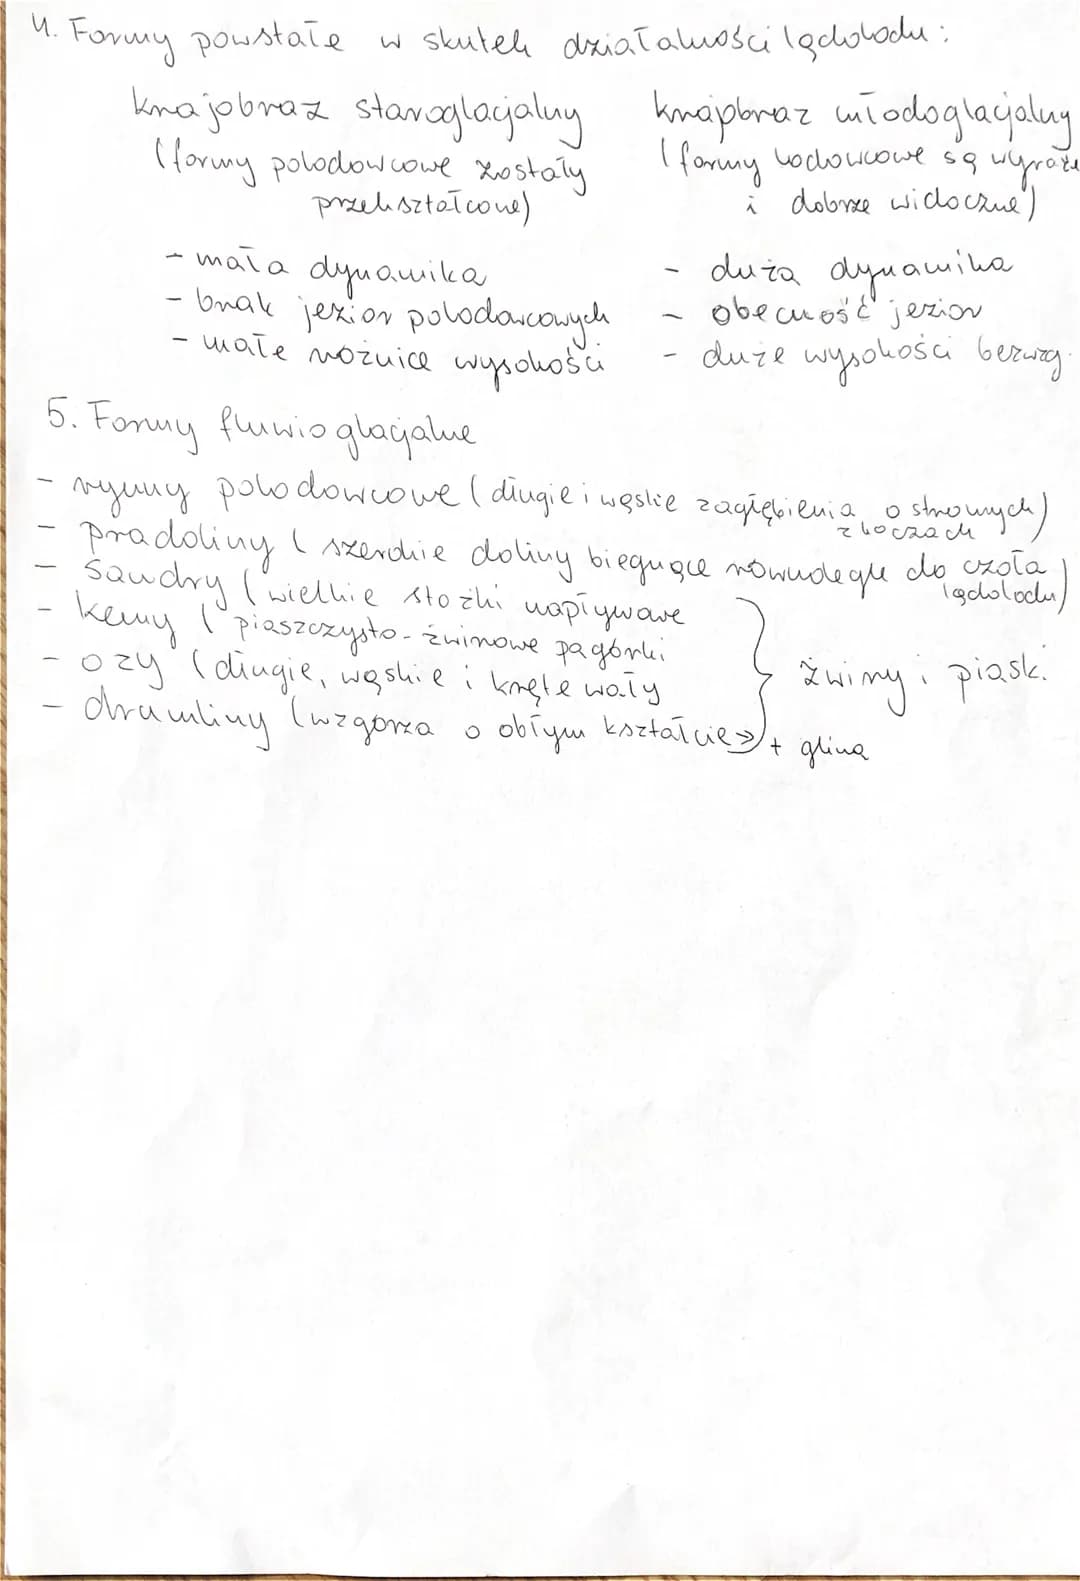 4. Formy powstałe w skutek działalności lądolodu:
krajobraz staroglacjalny
(formy polodowcowe zostały
przekształcone)
- mała dynamika
- brak jezior polodowcowych
- małe różnice wysokości
krajobraz młodoglacjalny
(formy lodowcowe są wyraźne
i dobrze widoczne)
- duża dynamika
- obecność jezior
- duże wysokości bezwzg.
5. Formy fluwioglacjalne
- rynny polodowcowe (długie i wąskie zagłębienia o stromych)
zboczach
- pradoliny (szerokie doliny biegnące równolegle do czoła
lądolodu)
- Sandry (wielkie stożki napływowe
- kemy (piaszczysto-żwirowe pagórki
- ozy (długie, wąskie i kręte wały
żwiry i piaski
- drumliny (wzgórza o obłym kształcie) + glina